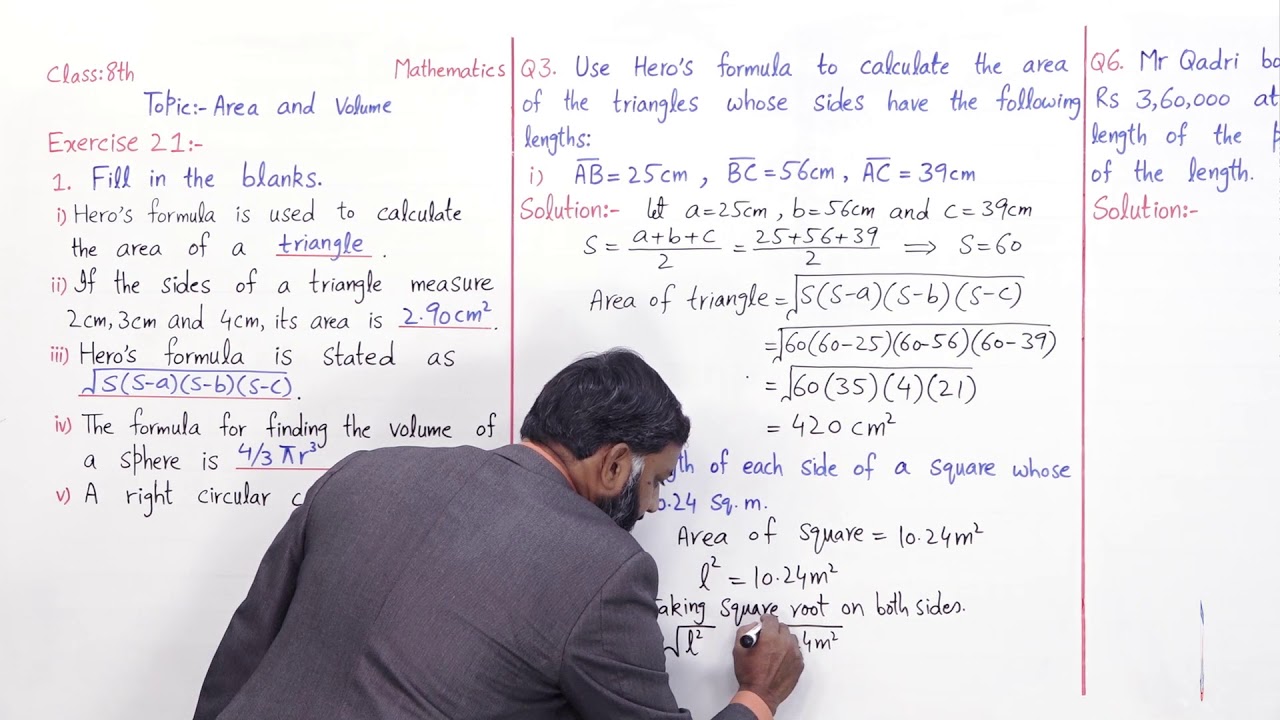 Class:8th Mathematics
Topic:- Area and Volume
Exercise 21:-
1. Fill in the blanks.
i) Hero's formula is used to calculate
the area of a triangle.
ii) If the sides of a triangle measure
2cm, 3cm and 4cm, its area is 2.90cm².
iii) Hero's formula is stated as
√S(S-a)(S-b)(S-c).
iv) The formula for finding the volume of
a sphere is 4/3 πr³
v) A right circular
Q3. Use Hero's formula to calculate the area
of the triangles whose sides have the following
lengths:
i) A̅B̅=25cm, B̅C̅=56cm, A̅C̅=39cm
Solution:- let a=25cm, b=56cm and c=39cm
S = a+b+c/2 = 25+56+39/2 ⟹ S=60
Area of triangle = √S(S-a)(S-b)(S-c)
= √60(60-25)(60-56)(60-39)
= √60(35)(4)(21)
= 420 cm²
of each side of a square whose
.24 Sq.m.
Area of square = 10.24m²
l² = 10.24m²
Taking square root on both sides.
√l² 4m²
Q6. Mr Qadri
Rs 3,60,000 at
length of the
of the length.
Solution:-